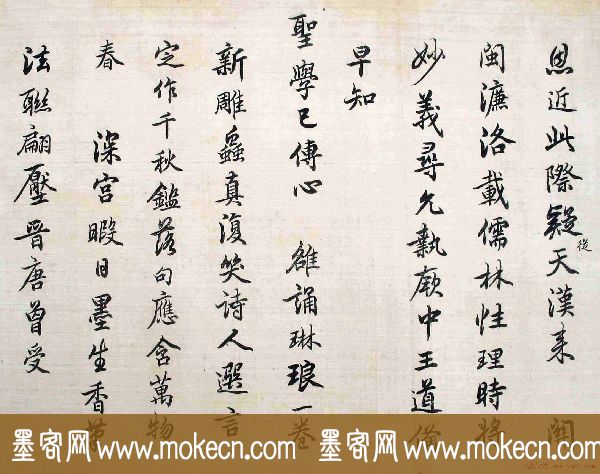 恩近此際疑從天漢來 閩
閩濂洛載儒林性理時將
妙義尋允執厥中王道備
早知
聖學已傳心 雒誦琳琅一卷
新雕蟲真復笑詩人選言
定作千秋鑑落句應含萬物
春 深宮暇日墨生香筆
法聯翩壓晉唐曾受
墨客网www.mokecn.com 墨客网www.mokecn.com